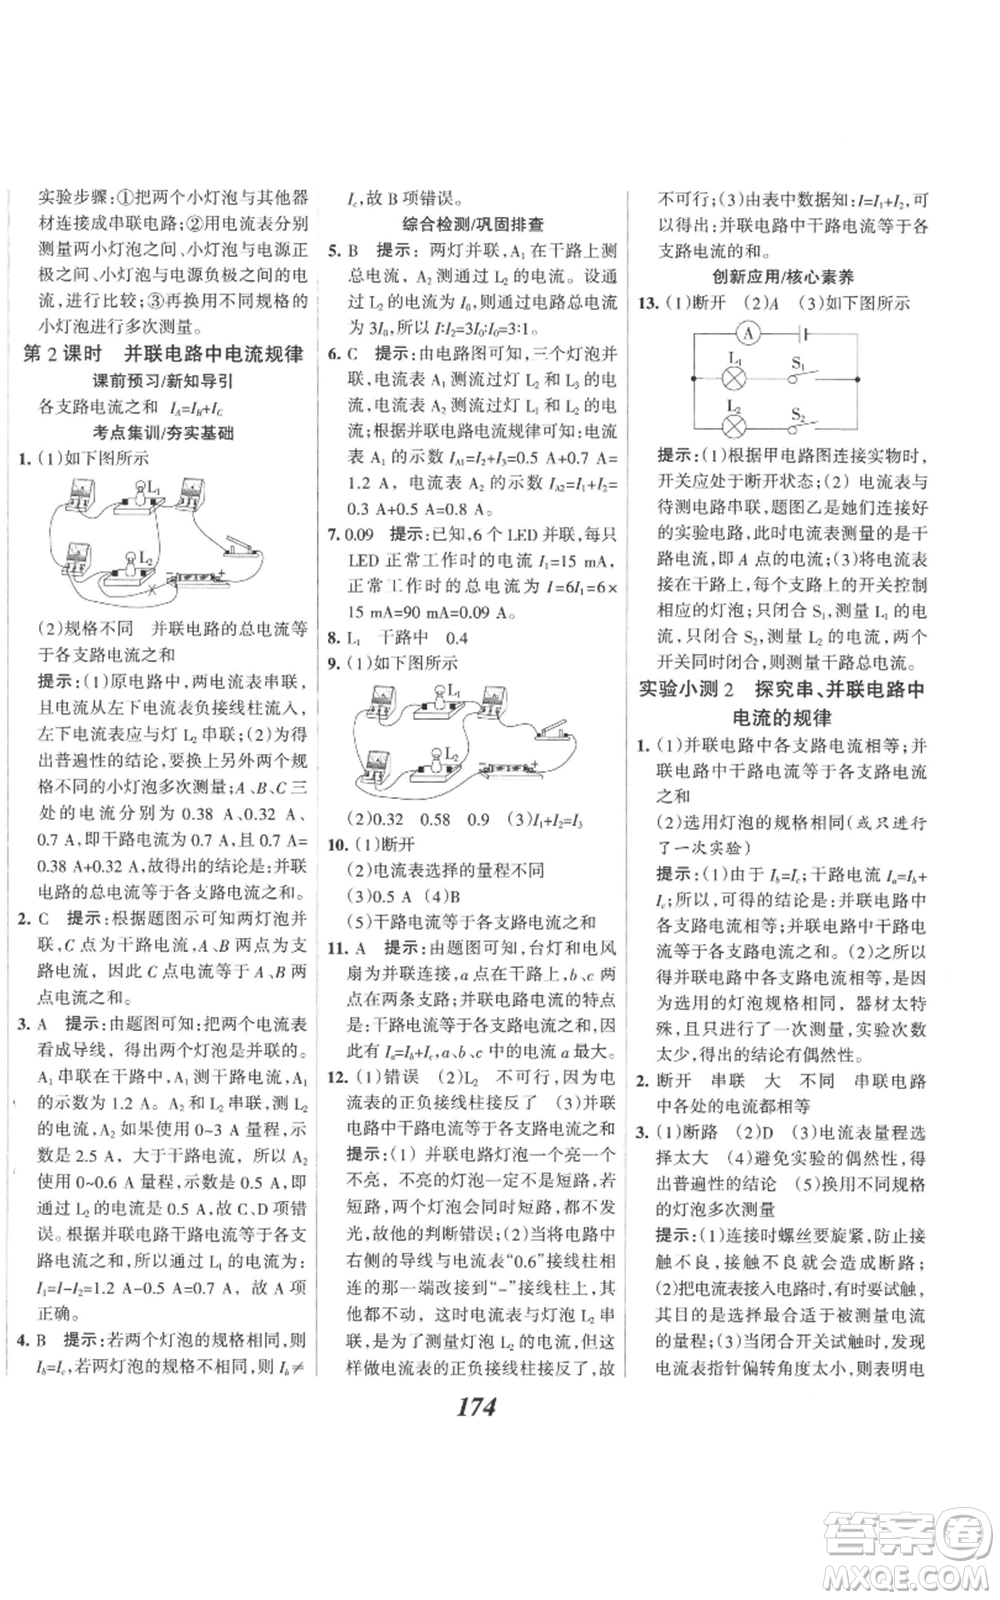 实验步骤:①把两个小灯泡与其他器
材连接成串联电路;②用电流表分别
测量两个小灯泡之间、小灯泡与电源
正极之间、小灯泡与电源负极之间的电
流,进行比较;③再换用不同规格的
小灯泡进行多次测量。
第2课时　并联电路中电流规律
课前预习/新知导引
各支路电流之和　I_A=I_B+I_C
考点集训/夯实基础
1. (1)如下图所示
L₁
L₂
(2)规格不同　并联电路的总电流等
于各支路电流之和
提示:(1)原电路中,两电流表串联,
且从左下电流表负接线柱流入,
左下电流表应与灯L₂串联;(2)为得
出普遍性的结论,要换上另外两个规
格不同的小灯泡多次测量;A、B、C三
处的电流分别为0.38 A、0.32 A、
0.7 A,即干路电流为0.7 A,且0.7 A=
0.38 A+0.32 A,故得出的结论是:并联
电路的总电流等于各支路电流之和。
2. C　提示:根据题图示可知两灯泡并
联,C点为干路电流,A、B两点为支
路电流,因此C点电流等于A、B两
点电流之和。
3. A　提示:由题图可知:把两个电流表
看成导线,得出两个灯泡是并联的。
A₁串联在干路中,测干路电流,A₁
的示数为1.2 A。A₂和L₂串联,测L₂
的电流,A₂如果使用0~3 A量程,示
数是2.5 A,大于干路电流,所以A₂
使用0~0.6 A量程,示数是0.5 A,
通过L₂的电流是0.5 A,故C、D项错
误。根据并联电路干路电流等于各支
路电流之和,所以通过L₁的电流为:
I₁=I-I₂=1.2 A-0.5 A=0.7 A,故A项
正确。
4. B　提示:若两个灯泡的规格相同,则
I_b=I_c,若两灯泡的规格不相同,则I_b≠
I_c,故B项错误。
综合检测/巩固排查
5. B　提示:两灯并联,A₁在干路上测
总电流,A₂测通过L₂的电流。设通
过L₂的电流为I₀,则电路总电流
为3I₀,所以I:I₂=3I₀:I₀=3:1。
6. C　提示:由电路图可知,三个灯泡并
联,电流表A₁测流过灯L₂和L₃的
电流之和,电流表A₂测干路电流。
根据并联电路电流规律可知:电流表
A₁的示数I_A1=I₂+I₃=0.5 A+0.7 A=
1.2 A,电流表A₂的示数I_A2=I₁+I₂=
0.3 A+0.5 A=0.8 A。
7. 0.09　提示:已知,6个LED并联,每只
LED正常工作时的电流I₁=15 mA,
正常工作时的总电流为I=6I₁=6×
15 mA=90 mA=0.09 A。
8. L₁　干路中　0.4
9. (1)如下图所示
L₁
L₂
(2)0.32　0.58　0.9　(3)I₁+I₂=I₃
10. (1)断开
(2)电流表选择的量程不同
(3)0.5 A　(4)B
(5)干路电流等于各支路电流之和
11. A　提示:由题图可知,台灯和电风
扇为并联连接,a点在干路上,b、c两
点在两条支路;并联电路电流的特点
是:干路电流等于各支路电流之和,
即I_a=I_b+I_c,a、b、c中的电流a最大。
12. (1)错误　(2)L₂　不可行,因为电
流表的正负接线柱接反了　(3)并
联电路中干路电流等于各支路电流
之和
提示:(1)并联电路灯泡一个亮一个
不亮,不亮的灯泡一定不是短路,若
短路,两个灯泡会同时短路,都不发
光,故他的判断错误;(2)当将电路中
右侧的导线与电流表“0.6”接线柱相
连的那一端改接到“-”接线柱上,其
他都不动,这时电流表与灯泡L₂串
联,是为了测量灯泡L₂的电流,但这
样做电流表的正负接线柱接反了,故
不可行;(3)由表中数据知:I=I₁+I₂,可
以得出:并联电路中干路电流等于各
支路电流的和。
创新应用/核心素养
13. (1)断开　(2)A　(3)如下图所示
A
L₁ S₁
L₂ S₂
提示:(1)根据甲电路图连接实物时,
开关应处于断开状态;(2)电流表与
待测电路串联,题图乙是她们连接好
的实验电路,此时电流表测量的是干
路电流,即A点的电流;(3)将电流表
接在干路上,每个支路的开关控制
相应的灯泡;只闭合S₁,测量L₁的电
流,只闭合S₂,测量L₂的电流,两个
开关同时闭合,则测量干路总电流。
实验小测2　探究串、并联电路中
电流的规律
1. (1)并联电路中各支路电流相等;并
联电路中干路电流等于各支路电流
之和
(2)选用灯泡的规格相同(或只进行
了一次实验)
提示:(1)由于I_b=I_c;干路电流I_a=I_b+
I_c,可得出的结论是:并联电路中各支
路电流相等;并联电路中,干路电
流等于各支路电流之和。(2)之所以
得并联电路中各支路电流相等,是因
为选用的灯泡规格相同,器材太特
殊,且只进行了一次测量,实验次数
太少,得出的结论有偶然性。
2. 断开　串联　大　不同　串联电路
中各处的电流都相等
3. (1)断路　(2)D　(3)电流表量程选
择太大　(4)避免实验的偶然性,得出
普遍性的结论　(5)选用不同规格
的灯泡多次测量
提示:(1)连接时螺丝要旋紧,防止接
触不良,接触不良会造成断路;
(2)把电流表接入电路时,有时要试触,
其目的是选择最合适于被测量电流
的量程;(3)当闭合开关试触时,发现
电流表指针偏转角度太小,则表明电
174
答案卷
www.mydaanjuan.com